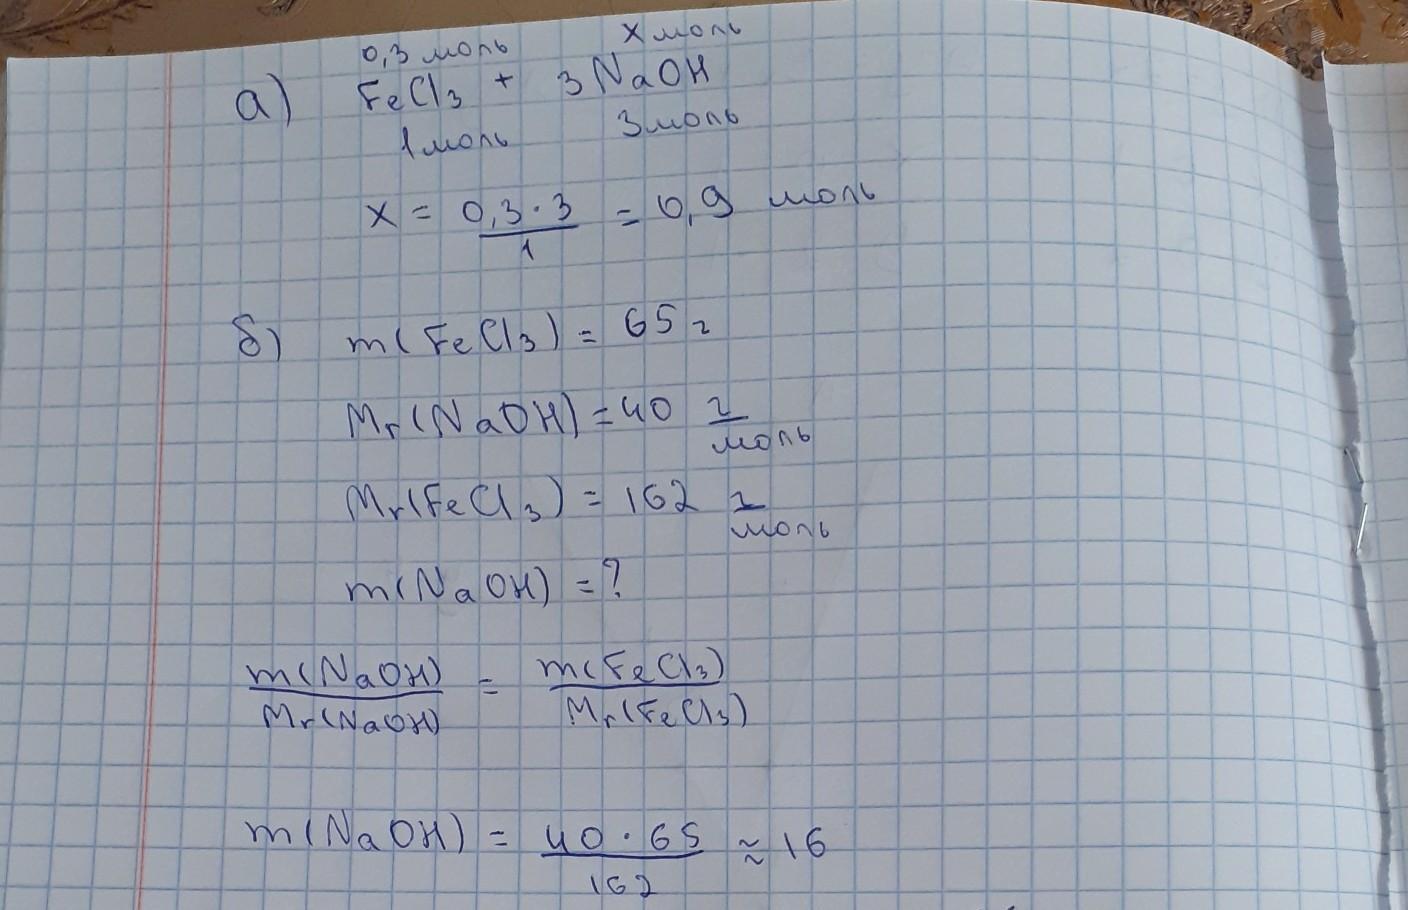 0,3 моль x моль
а) FeCl3 + 3 NaOH
1 моль 3 моль
x = 0,3 · 3 / 1 = 0,9 моль
б) m(FeCl3) = 65 г
Mr(NaOH) = 40 г/моль
Mr(FeCl3) = 162 г/моль
m(NaOH) = ?
m(NaOH) / Mr(NaOH) = m(FeCl3) / Mr(FeCl3)
m(NaOH) = 40 · 65 / 162 ≈ 16